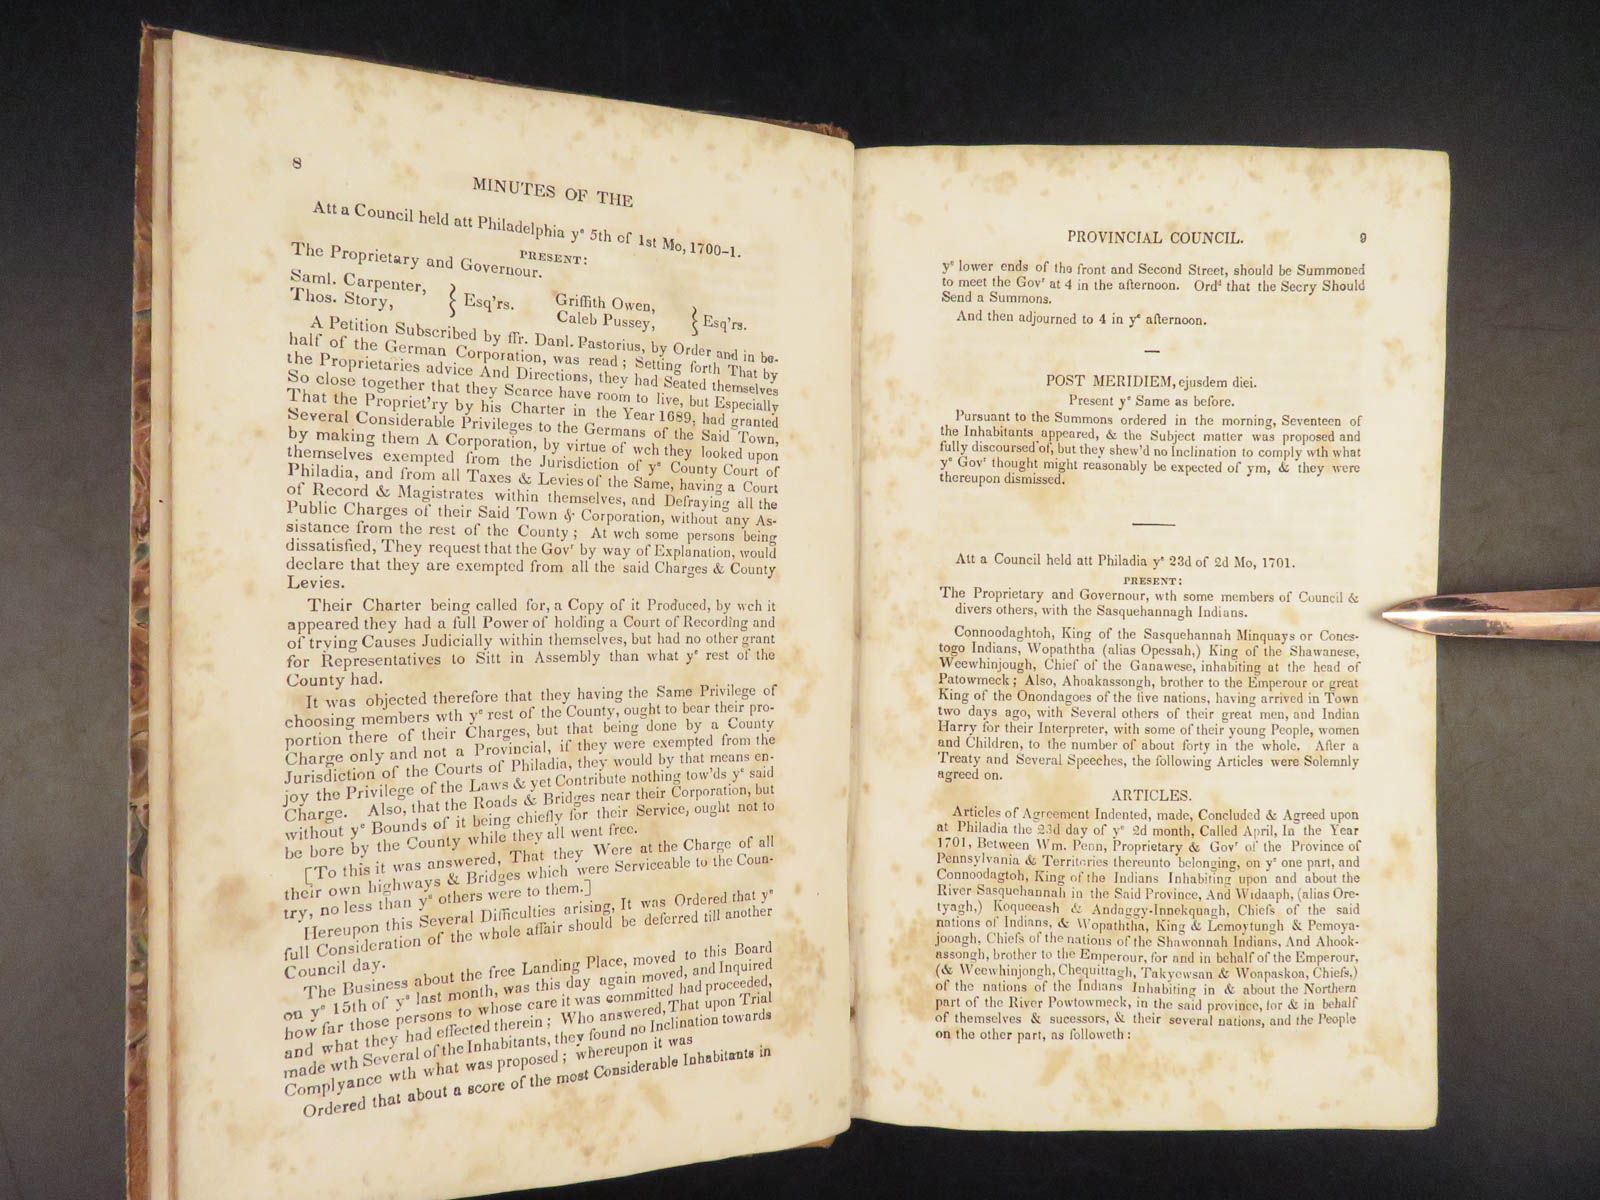 8
MINUTES OF THE
Att a Council held att Philadelphia ye 5th of 1st Mo, 1700-1.
PRESENT:
The Proprietary and Governour.
Saml. Carpenter, } Esq'rs. Griffith Owen, } Esq'rs.
Thos. Story, Caleb Pussey,
A Petition Subscribed by ffr. Danl. Pastorius, by Order and in be-
half of the German Corporation, was read; Setting forth That by
the Proprietaries advice And Directions, they had Seated themselves
So close together that they Scarce have room to live, but Especially
That the Propriet'ry by his Charter in the Year 1689, had granted
Several Considerable Privileges to the Germans of the Said Town,
by making them A Corporation, by virtue of wch they looked upon
themselves exempted from the Jurisdiction of ye County Court of
Philadia, and from all Taxes & Levies of the Same, having a Court
of Record & Magistrates within themselves, and Defraying all the
Public Charges of their Said Town & Corporation, without any As-
sistance from the rest of the County; At wch some persons being
dissatisfied, They request that the Govr by way of Explanation, would
declare that they are exempted from all the said Charges & County
Levies.
Their Charter being called for, a Copy of it Produced, by wch it
appeared they had a full Power of holding a Court of Recording and
of trying Causes Judicially within themselves, but had no other grant
for Representatives to Sitt in Assembly than what ye rest of the
County had.
It was objected therefore that they having the Same Privilege of
choosing members wth ye rest of the County, ought to bear their pro-
portion there of their Charges, but that being done by a County
Charge only and not a Provincial, if they were exempted from the
Jurisdiction of the Courts of Philadia, they would by that means en-
joy the Privilege of the Laws & yet Contribute nothing tow'ds ye said
Charge. Also, that the Roads & Bridges near their Corporation, but
without ye Bounds of it being chiefly for their Service, ought not to
be bore by the County while they all went free.
[To this it was answered, That they Were at the Charge of all
their own highways & Bridges which were Serviceable to the Coun-
try, no less than ye others were to them.]
Hereupon this Several Difficulties arising, It was Ordered that ye
full Consideration of the whole affair should be deferred till another
Council day.
The Business about the free Landing Place, moved to this Board
on ye 15th of ye last month, was this day again moved, and Inquired
how far those persons to whose care it was committed had proceeded,
and what they had effected therein; Who answered, That upon Trial
made wth Several of the Inhabitants, they found no Inclination towards
Complyance wth what was proposed; whereupon it was
Ordered that about a score of the most Considerable Inhabitants in
PROVINCIAL COUNCIL. 9
ye lower ends of the front and Second Street, should be Summoned
to meet the Govr at 4 in the afternoon. Ordd that the Secry Should
Send a Summons.
And then adjourned to 4 in ye afternoon.
POST MERIDIEM, ejusdem diei.
Present ye Same as before.
Pursuant to the Summons ordered in the morning, Seventeen of
the Inhabitants appeared, & the Subject matter was proposed and
fully discoursed of, but they shew'd no Inclination to comply wth what
ye Govr thought might reasonably be expected of ym, & they were
thereupon dismissed.
Att a Council held att Philadia ye 23d of 2d Mo, 1701.
PRESENT:
The Proprietary and Governour, wth some members of Council &
divers others, with the Sasquehannagh Indians.
Connoodaghtoh, King of the Sasquehannah Minquays or Cones-
togo Indians, Wopaththa (alias Opessah,) King of the Shawanese,
Weewhinjough, Chief of the Ganawese, inhabiting at the head of
Patowmeck; Also, Ahoakassongh, brother to the Emperour or great
King of the Onondagoes of the five nations, having arrived in Town
two days ago, with Several others of their great men, and Indian
Harry for their Interpreter, with some of their young People, women
and Children, to the number of about forty in the whole. After a
Treaty and Several Speeches, the following Articles were Solemnly
agreed on.
ARTICLES.
Articles of Agreement Indented, made, Concluded & Agreed upon
at Philadia the 23d day of ye 2d month, Called April, In the Year
1701, Between Wm. Penn, Proprietary & Govr of the Province of
Pennsylvania & Territories thereunto belonging, on ye one part, and
Connoodagtoh, King of the Indians Inhabiting upon and about the
River Sasquehannah in the Said Province, And Widaaph, (alias Ore-
tyagh,) Koqueeash & Andaggy-Innekquagh, Chiefs of the said
nations of Indians, & Wopaththa, King & Lemoytungh & Pemoya-
joough, Chiefs of the nations of the Shawonnah Indians, And Ahook-
assongh, brother to the Emperour, for and in behalf of the Emperour,
(& Weewhinjongh, Chequittagh, Takyewsan & Woapaskoa, Chiefs,)
of the nations of the Indians Inhabiting in & about the Northern
part of the River Powtowmeck, in the said province, for & in behalf
of themselves & sucessors, & their several nations, and the People
on the other part, as followeth: